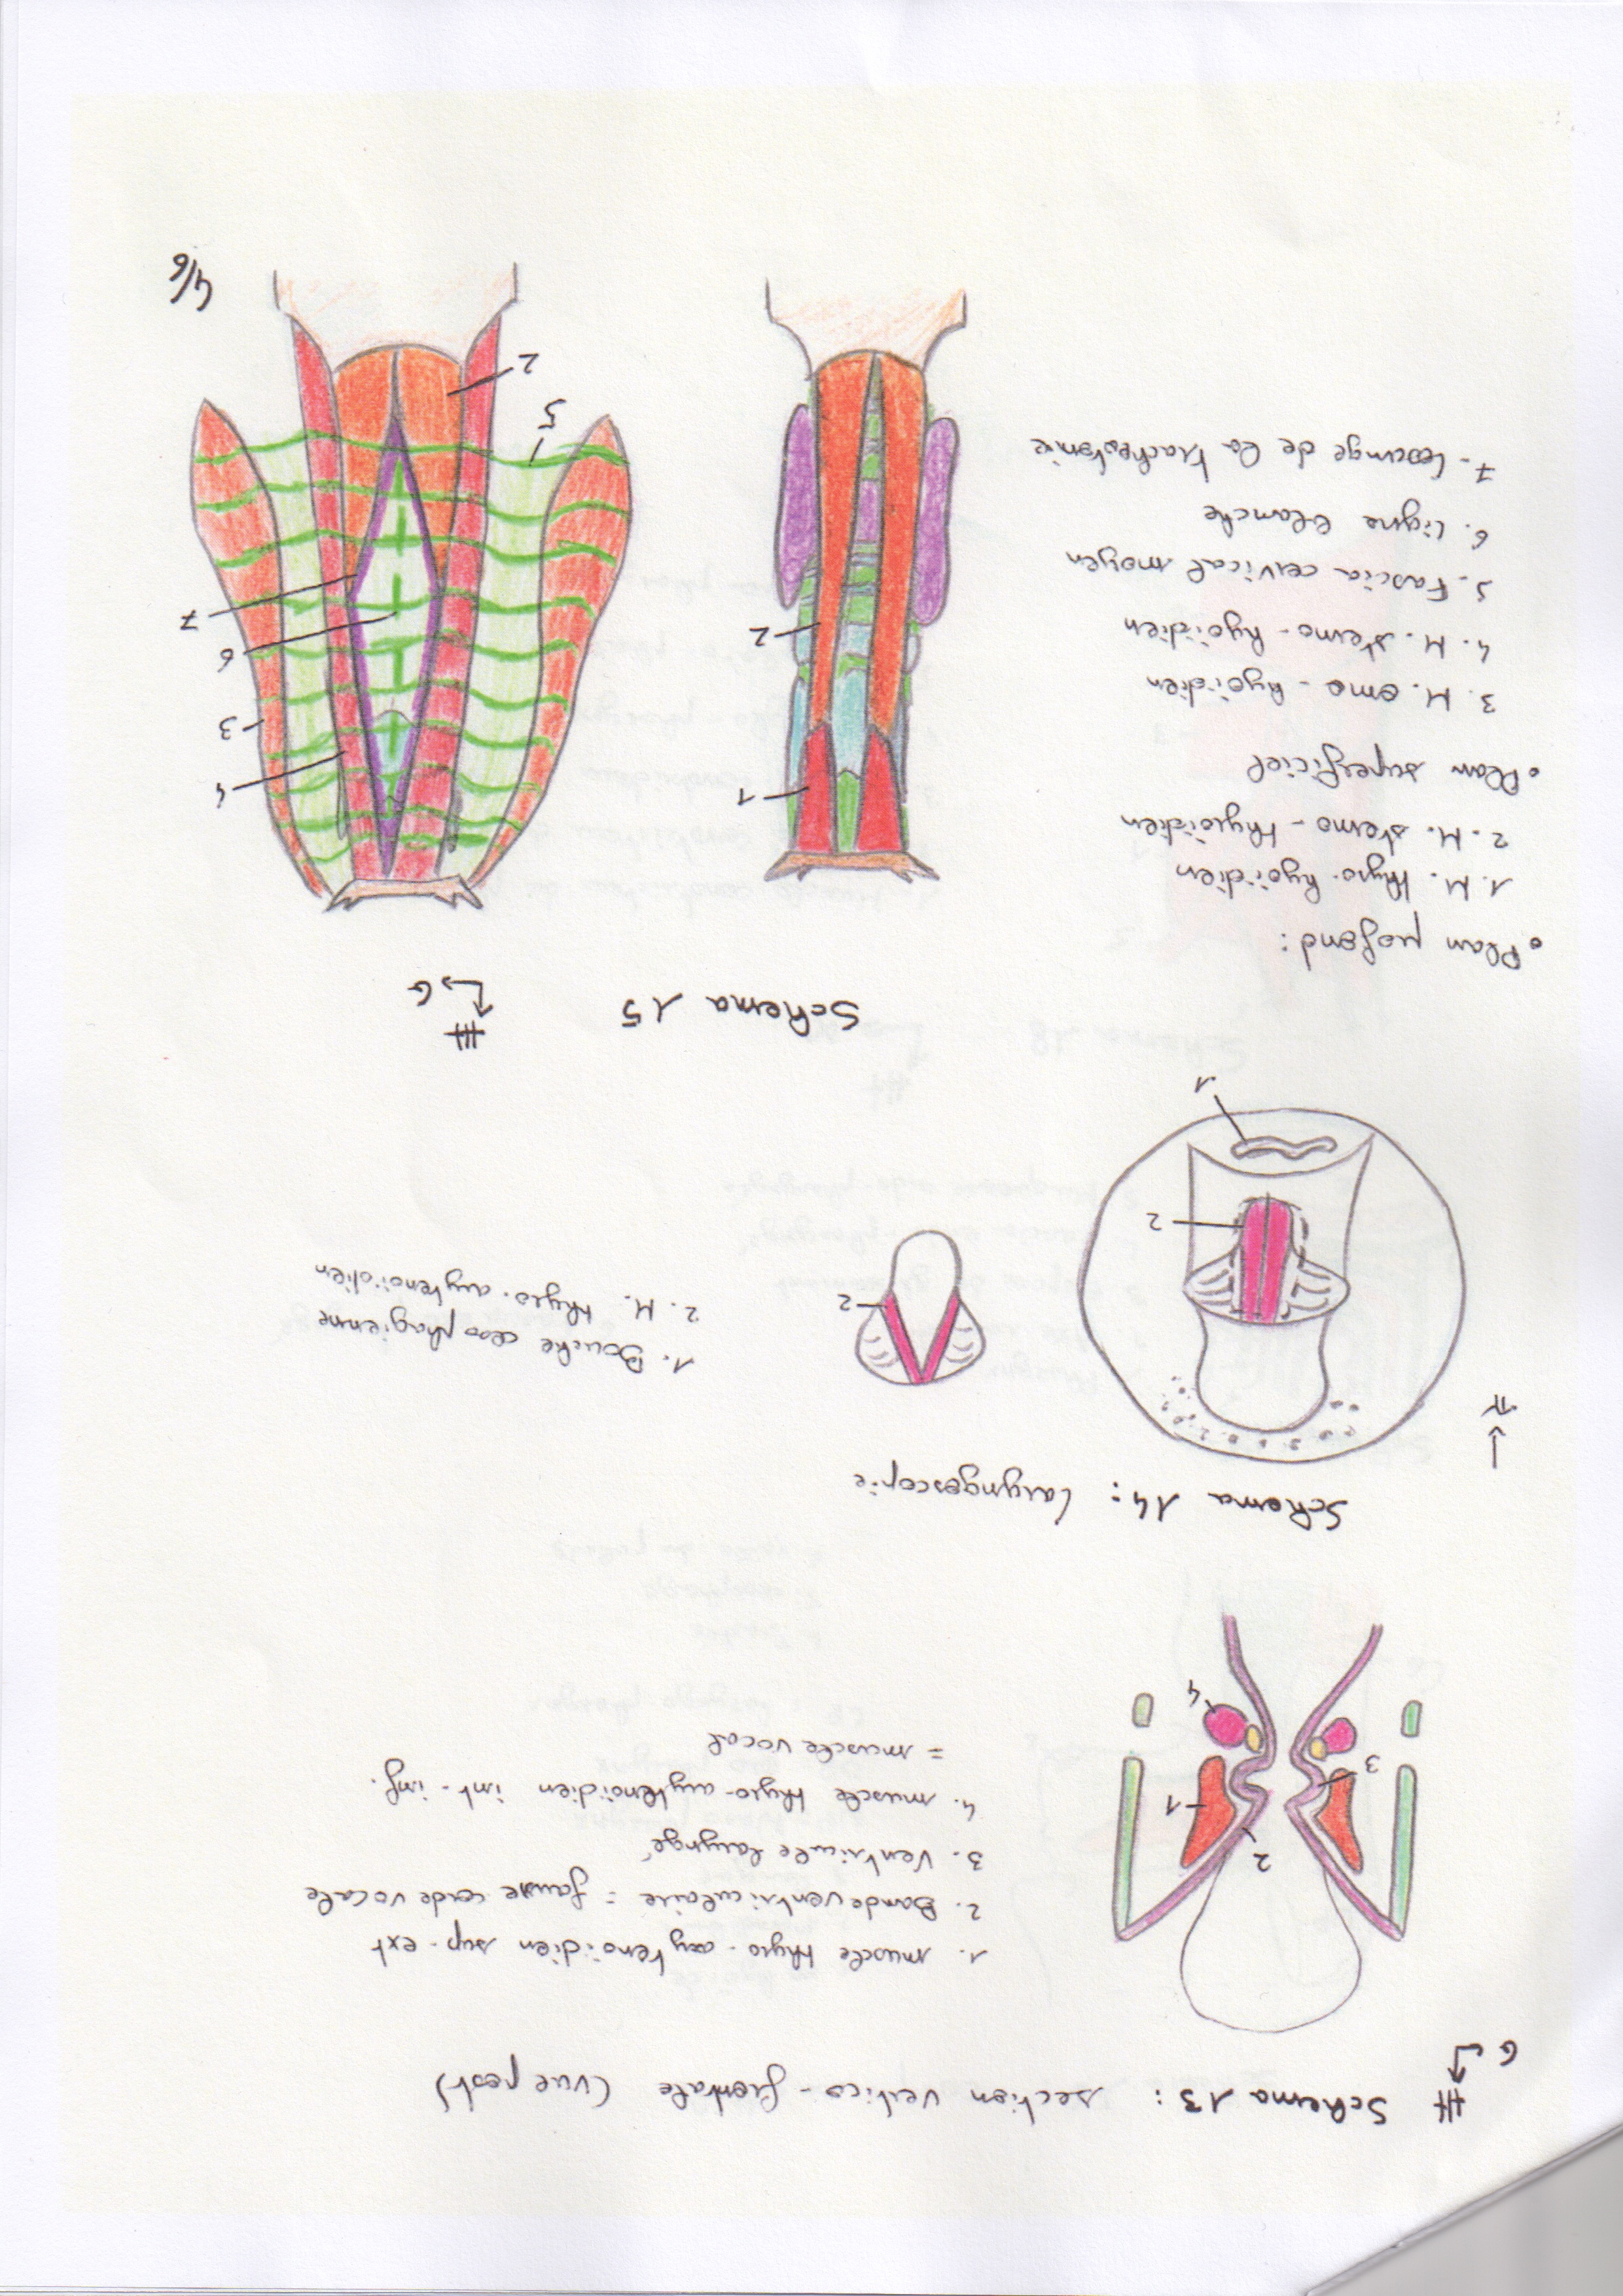 Ht
G
Schema 13 : section vertico-frontale (vue post)
1. muscle thyro-aryténoïdien sup-ext
2. Bande ventriculaire = fausse corde vocale
3. Ventricule laryngé
4. muscle thyro-aryténoïdien int-inf.
= muscle vocal
1
2
3
4
Schema 14 : laryngoscopie
1. Bouche œsophagienne
2. M. thyro-aryténoïdien
2
2
1
Schema 15
Ht
G
• Plan profond :
1. M. thyro-hyoïdien
2. M. sterno-thyroïdien
• Plan superficiel
3. M. omo-hyoïdien
4. M. sterno-hyoïdien
5. Fascia cervical moyen
6. Ligne blanche
7- losange de la trachéotomie
1
2
4
3
6
7
5
2
4/6